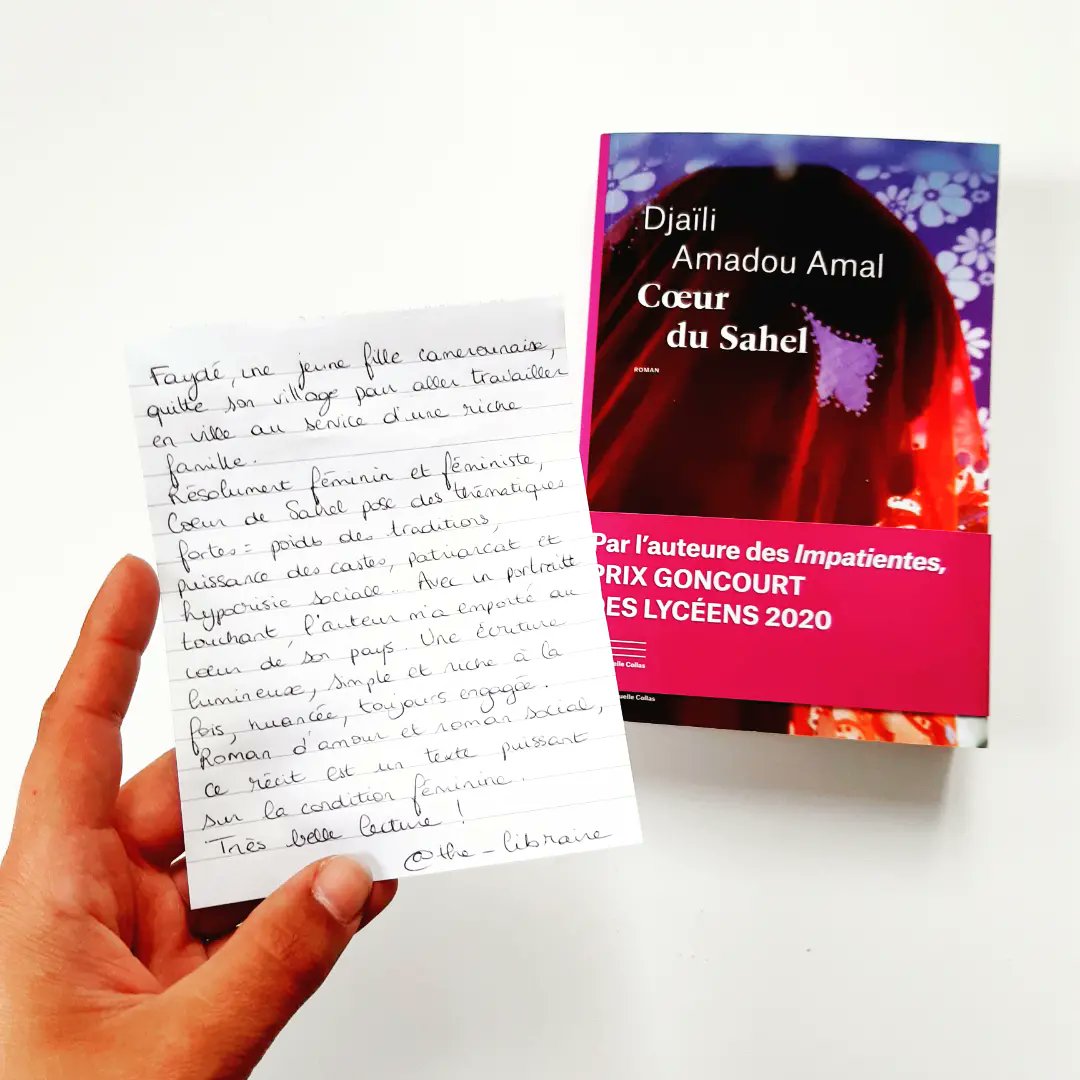 Faydé, une jeune fille camerounaise,
quitte son village pour aller travailler
en ville au service d'une riche
famille.
Résolument féminin et féministe,
Coeur de Sahel pose des thématiques
fortes = poids des traditions,
puissance des castes, patriarcat et
hypocrisie sociale... Avec un portrait
touchant, l'auteur m'a emporté au
coeur de son pays. Une écriture
lumineuse, simple et riche à la
fois, nuancée, toujours engagée.
Roman d'amour et roman social,
ce récit est un texte puissant
sur la condition féminine.
Très belle lecture !
@the_libraire
Djaïli
Amadou Amal
Cœur
du Sahel
ROMAN
Par l'auteure des Impatientes,
PRIX GONCOURT
DES LYCÉENS 2020
elle Collas
uelle Collas